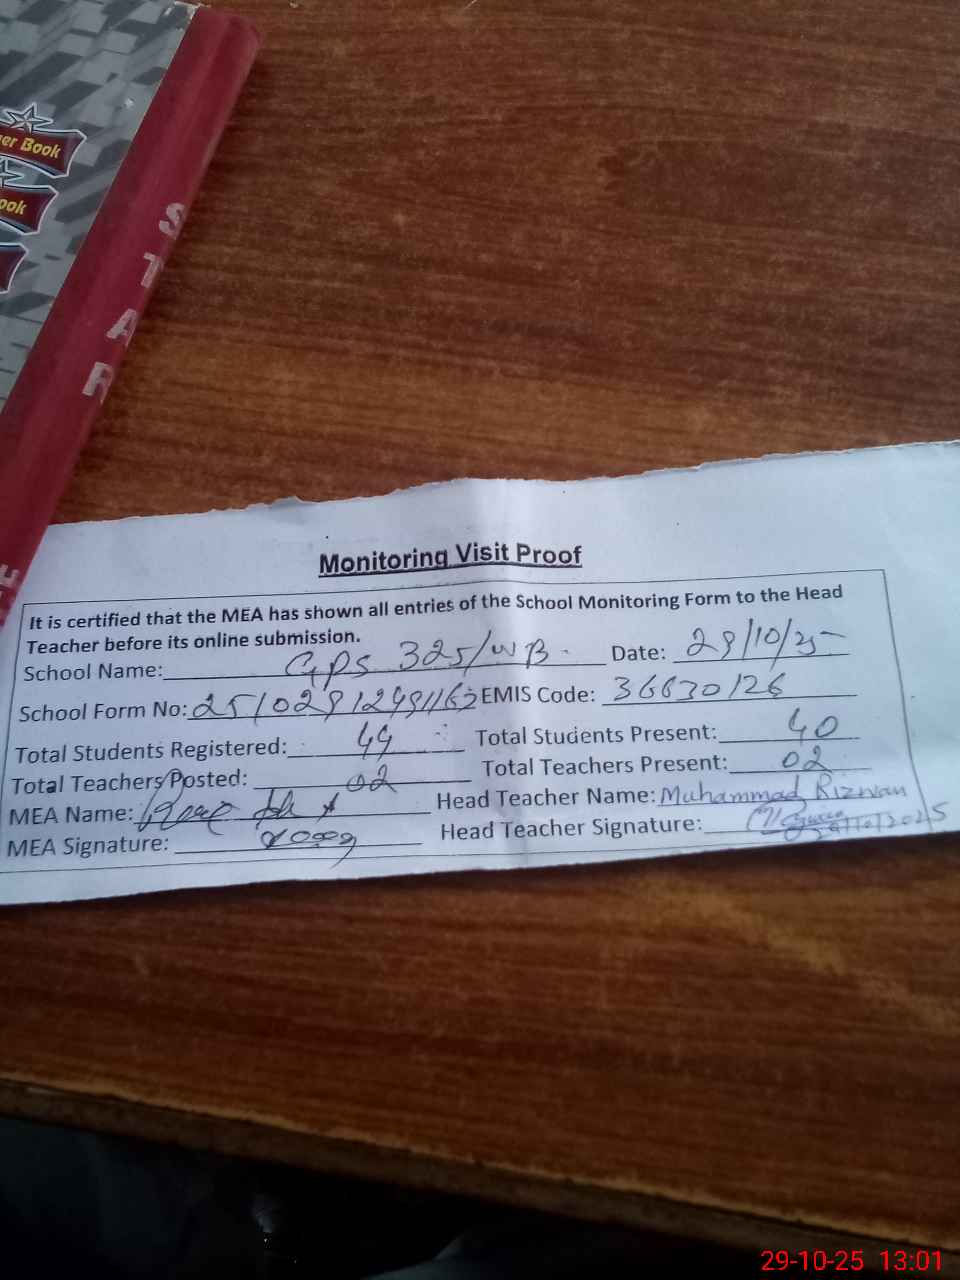 er Book
ook
STAR
Monitoring Visit Proof
It is certified that the MEA has shown all entries of the School Monitoring Form to the Head
Teacher before its online submission.
School Name: GPS 325/WB. Date: 29/10/25
School Form No: EMIS Code: 36630126
Total Students Registered: 44 Total Students Present: 40
Total Teachers Posted: 02 Total Teachers Present: 02
MEA Name: Head Teacher Name: Muhammad Rizwan
MEA Signature: Head Teacher Signature: 29/10/2025
29-10-25 13:01